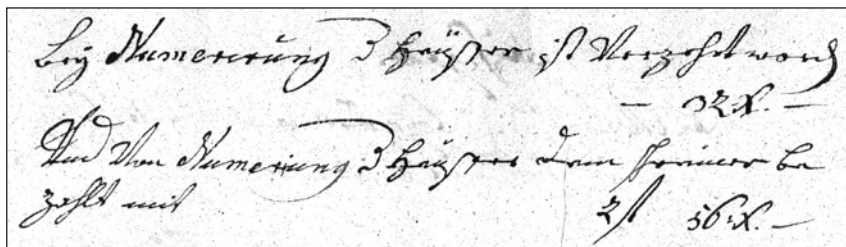 bey Numerirung d Heüßer ist Verzehrt word
— 32 X. —
Und Von Numerirung d Heüßer dem Schreiner be
zahlt mit 2 f 56 X. —